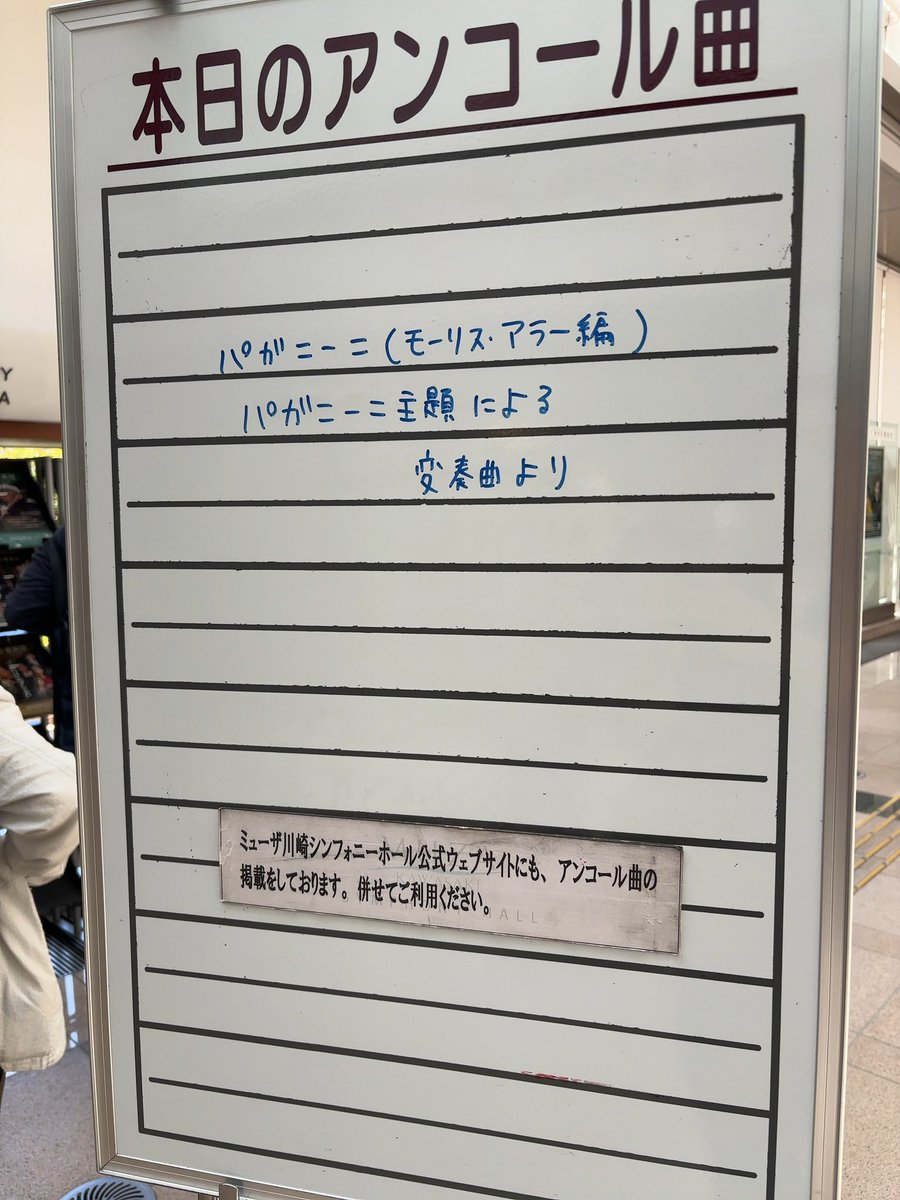 本日のアンコール曲
パガニーニ(モーリス・アラー編)
パガニーニ主題による
変奏曲より
ミューザ川崎シンフォニーホール公式ウェブサイトにも、アンコール曲の
掲載をしております。併せてご利用ください。
HALL
Y
A